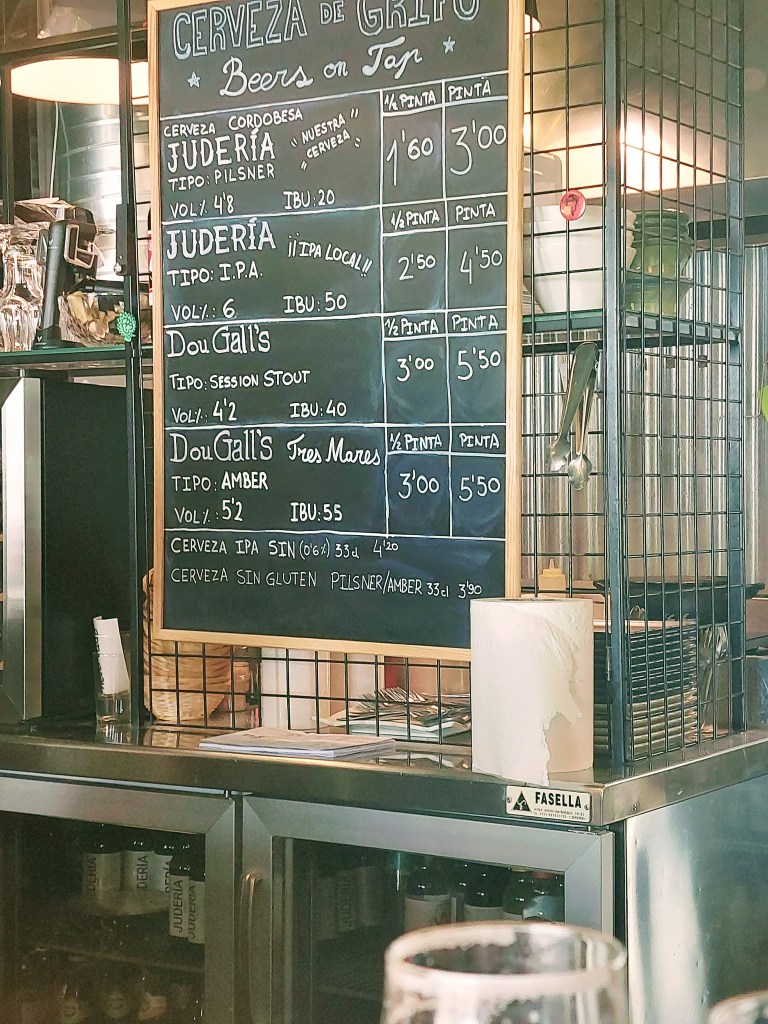 CERVEZA DE GRIFO
Beers on Tap
CERVEZA CORDOBESA
JUDERÍA "NUESTRA CERVEZA"
TIPO: PILSNER
VOL%. 4'8 IBU: 20
½ PINTA PINTA
1'60 3'00
JUDERÍA ¡¡IPA LOCAL!!
TIPO: I.P.A.
VOL%.: 6 IBU: 50
½ PINTA PINTA
2'50 4'50
DouGall's
TIPO: SESSION STOUT
VOL%.: 4'2 IBU: 40
½ PINTA PINTA
3'00 5'50
DouGall's Tres Mares
TIPO: AMBER
VOL%.: 5'2 IBU: 55
½ PINTA PINTA
3'00 5'50
CERVEZA IPA SIN (0'6%) 33cl 4'20
CERVEZA SIN GLUTEN PILSNER/AMBER 33cl 3'90
FASELLA
JUDERÍA
DERÍA
JUDERÍA
JUDERÍA